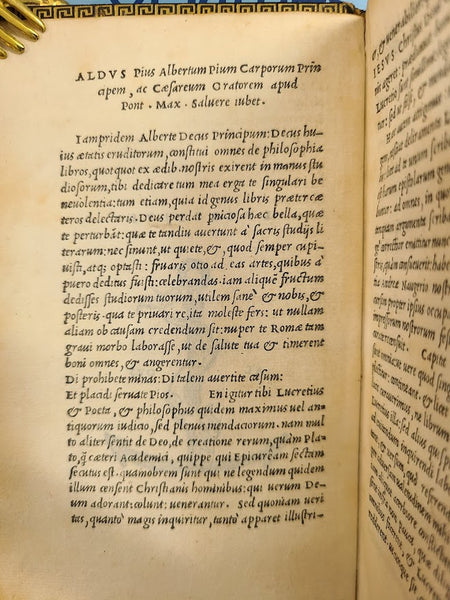 ALDVS Pius Albertum Pium Carporum Prin
cipem, ac Cæsareum Oratorem apud
Pont. Max. Saluere iubet.
Iampridem Alberte Decus Principum: Decus hu-
ius ætatis eruditorum, constitui omnes de philosophia
libros, quotquot ex ædib. nostris exirent in manus stu
diosorum, tibi dedicare tum mea erga te singulari be
neuolentia: tum etiam, quia id genus libris præter cæ
teros delectaris. Deus perdat pniciosa hæc bella, quæ
te perturbāt: quæ te tandiu auertunt à sacris studijs li
terarum: nec sinunt, ut quiete, &, quod semper cupi-
uisti, atq; optasti: fruaris otio ad eas artes, quibus à
puero deditus fuisti: celebrandas. iam aliquē fructum
dedisses studiorum tuorum, utilem sanè & nobis, &
posteris. qua te priuari re, ita moleste fers: ut nullam
aliam ob causam credendum sit: nuper te Romæ tam
graui morbo laborasse, ut de salute tua & timerent
boni omnes, & angerentur.
Di prohibete minas: Di talem auertite casum:
Et placidi seruate Pios. En igitur tibi Lucretius
& Poeta, & philosophus quidem maximus uel an-
tiquorum iudicio, sed plenus mendaciorum. nam mul
to aliter sentit de Deo, de creatione rerum, quàm Pla-
to, q̄ cæteri Academici, quippe qui Epicurêam sectam
secutus est. quamobrem sunt qui ne legendum quidem
illum censent Christianis hominibus: qui uerum De-
um adorant: colunt: uenerantur. Sed quoniam ueri
tas, quantò magis inquiritur, tantò apparet illustri-